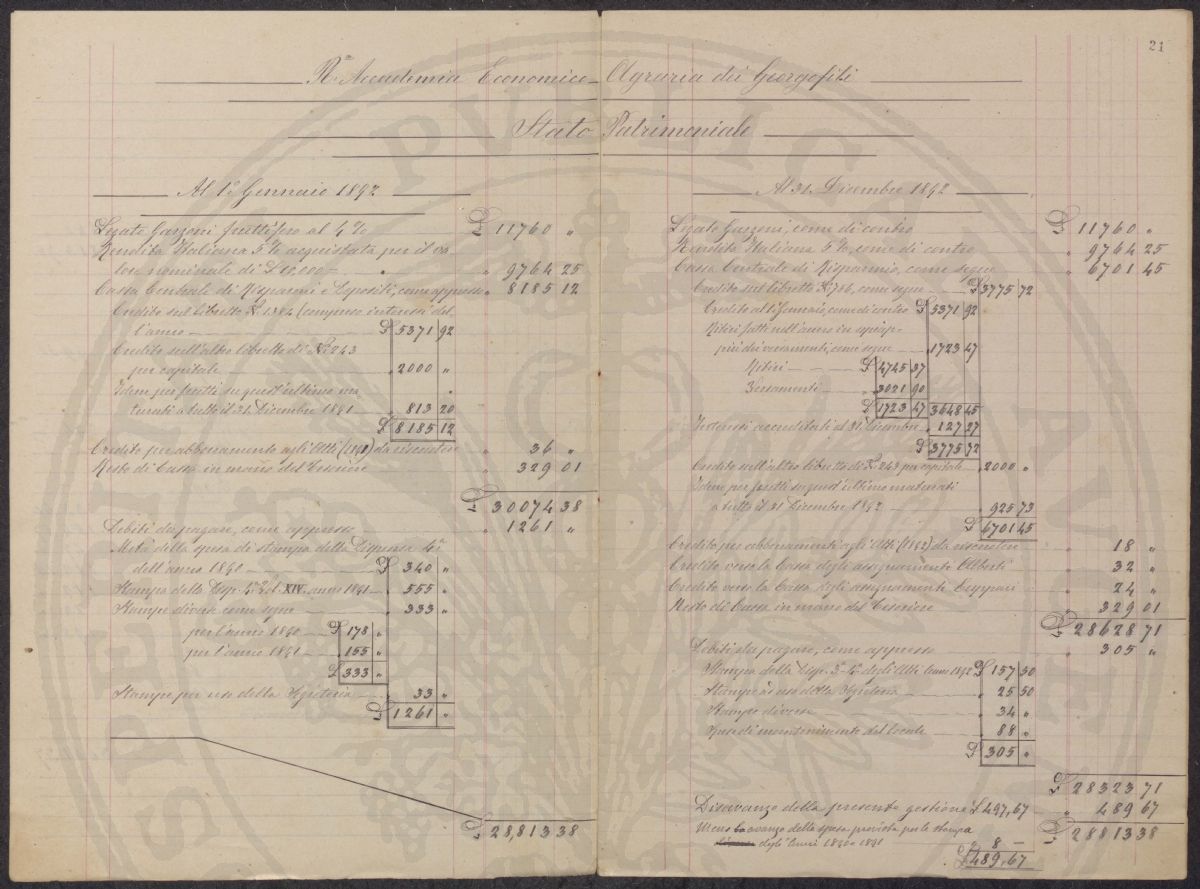 21
R.ª Accademia Economico-Agraria dei Georgofili
Stato Patrimoniale
Al 1º Gennaio 1892
Legato Garzoni fruttifero al 4% £ 11760 "
Rendita Italiana 5% acquistata per il va
lore nominale di £ 10,000 — " 9764 25
Cassa Centrale di Risparmi e Depositi, come appresso " 8185 12
Credito sul libretto Nº compreso interessi del
l'anno £ 5371 92
Credito sull'altro libretto di Nº 243
per capitale " 2000 "
Idem per frutti su quest'ultimo ma
turati a tutto il 31 Dicembre 1891 " 813 20
£ 8185 12
Credito per abbonamento agli Atti (1891) da riscuotere " 36 "
Resto di Cassa in mano del Tesoriere " 329 01
£ 30074 38
Debiti da pagare, come appresso " 1261 "
Metà della spesa di stampa della Dispensa 4ª
dell'anno 1890 £ 340 "
Stampa della Disp. 4ª Vol. XIV. anno 1891 " 555 "
Stampe diverse come segue " 333 "
per l'anno 1890 £ 178 "
per l'anno 1891 " 155 "
£ 333 "
Stampe per uso della Segreteria " 33 "
£ 1261 "
£ 28,813 38
Al 31 Dicembre 1892
Legato Garzoni, come di contro £ 11760 "
Rendita Italiana 5%, come di contro " 9764 25
Cassa Centrale di Risparmio, come segue " 6701 45
Credito sul libretto Nº come segue £ 3775 72
Credito al 1º Gennaio, come di contro £ 5371 92
Ritiri fatti nell'anno in
più dei versamenti, come segue " 1723 47
Ritiri £ 4745 37
Versamenti " 3021 90
£ 1723 47 3648 45
Interessi accreditati al 31 Dicembre " 127 27
£ 3775 72
Credito sull'altro libretto di Nº 243 per capitale " 2000 "
Idem per frutti su quest'ultimo maturati
a tutto il 31 Dicembre 1892 " 925 73
£ 6701 45
Credito per abbonamenti agli Atti (1892) da riscuotere " 18 "
Credito verso la Cassa degli assegnamento Alberti " 32 "
Credito verso la Cassa degli assegnamento Cuppari " 24 "
Resto di Cassa in mano del Tesoriere " 329 01
£ 28628 71
Debiti da pagare, come appresso " 305 "
Stampa della Disp. 3ª-4ª degli Atti Anno 1892 £ 157 50
Stampe ad uso della Segreteria " 25 50
Stampe diverse " 34 "
Spese di mantenimento del locale " 88 "
£ 305 "
£ 28323 71
Disavanzo della presente gestione £ 497,67 " 489 67
Meno avanzo della spesa prevista per la stampa
degli Anni 1890 e 1891 " 8 —
£ 489,67
£ 28813 38